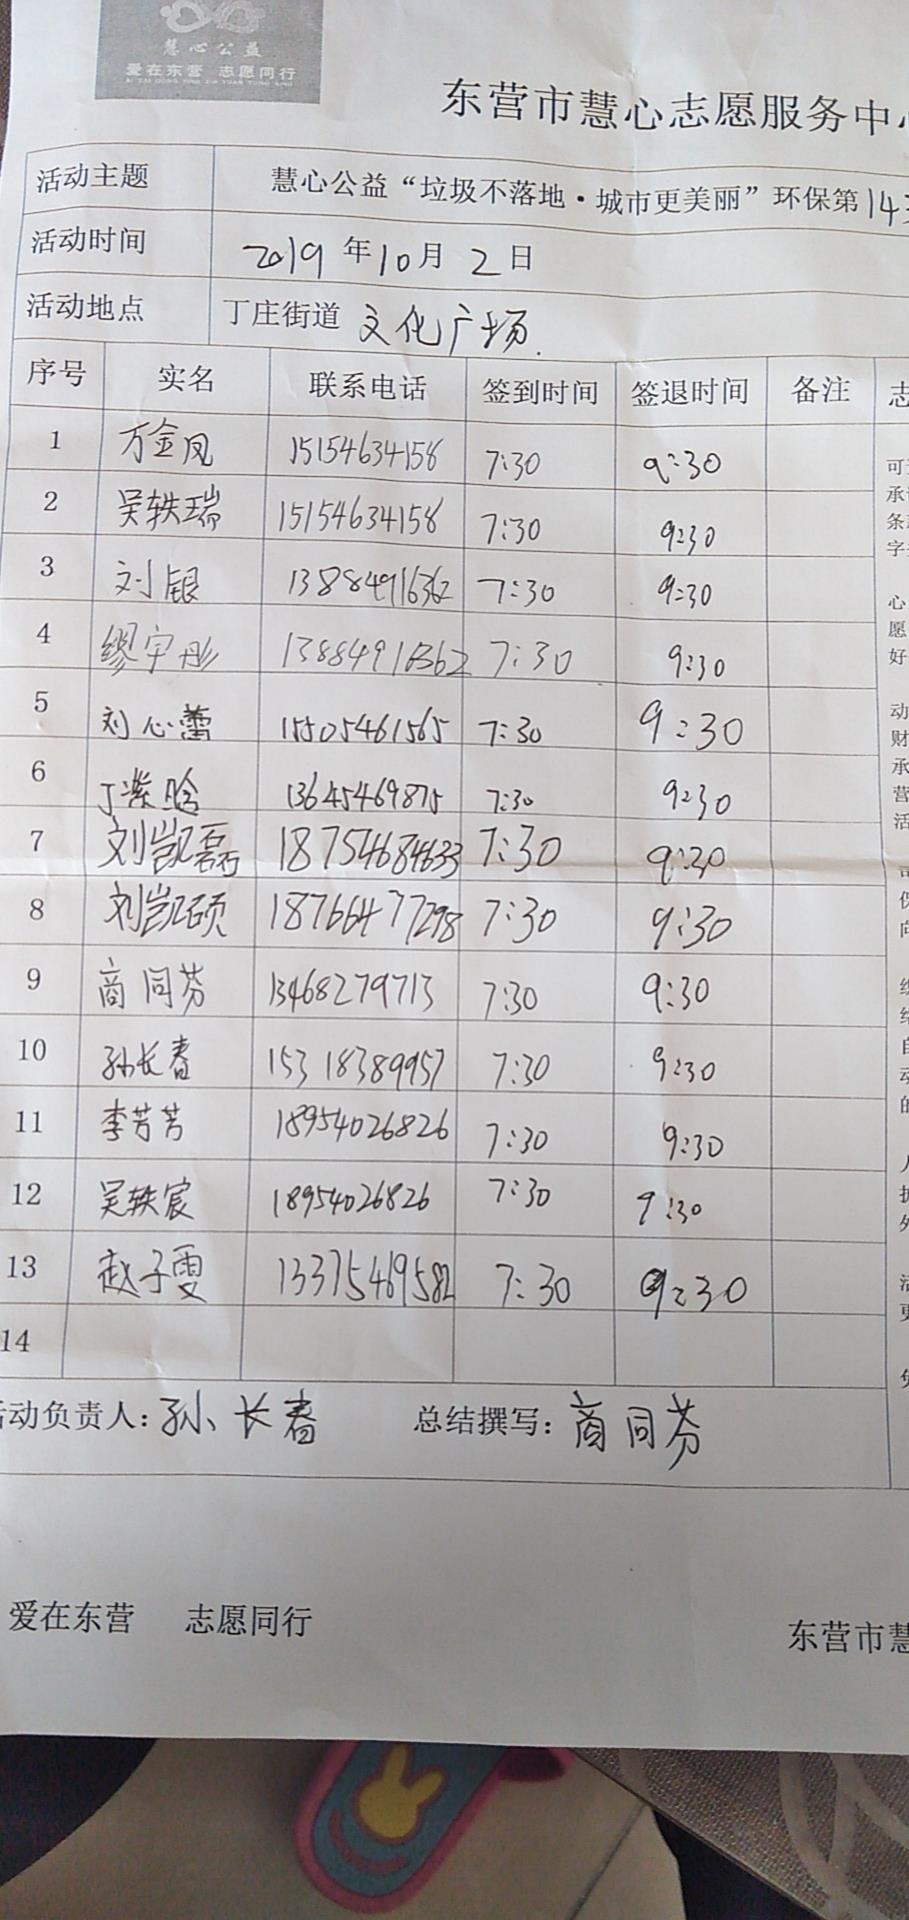 慧心公益
爱在东营 志愿同行
东营市慧心志愿服务中
活动主题 慧心公益“垃圾不落地·城市更美丽”环保第14
活动时间 2019年10月2日
活动地点 丁庄街道 文化广场
序号 实名 联系电话 签到时间 签退时间 备注 志
1 万金凤 15154634158 7:30 9:30
2 吴轶瑞 15154634158 7:30 9:30
3 刘银 13884916362 7:30 9:30
4 缪宇彤 13884916362 7:30 9:30
5 刘心蕾 15505461565 7:30 9:30
6 丁紫晗 13645469875 7:30 9:30
7 刘凯磊 18754684633 7:30 9:30
8 刘凯硕 18766477298 7:30 9:30
9 商同芬 13468279713 7:30 9:30
10 孙长春 15318389957 7:30 9:30
11 李芳芳 18954026826 7:30 9:30
12 吴轶宸 18954026826 7:30 9:30
13 赵子雯 13375469582 7:30 9:30
14
动负责人：孙长春 总结撰写：商同芬
爱在东营 志愿同行
东营市慧